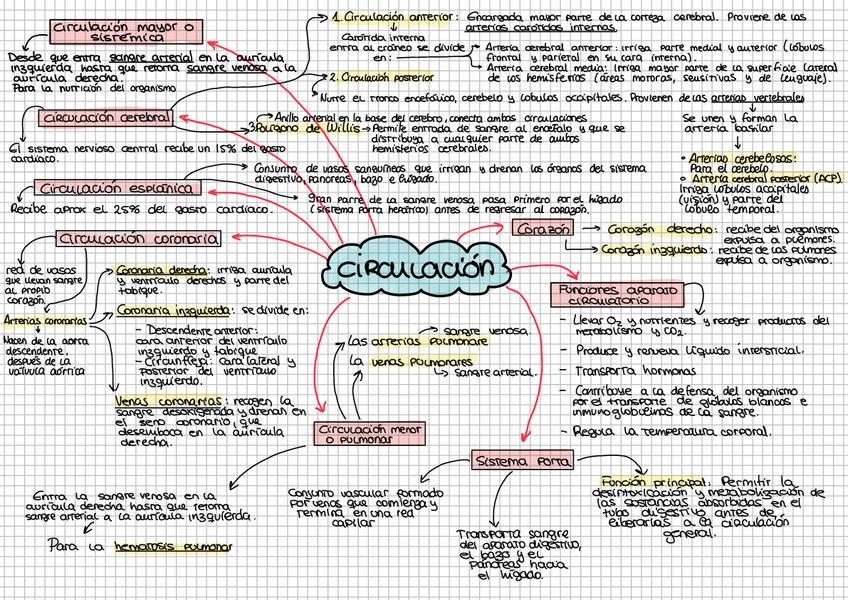 Circulación mayor o
sistémica
Desde que entra sangre arterial en la aurícula
izquierda hasta que retorna sangre venosa a la
aurícula derecha.
Para la nutrición del organismo
1. Circulación anterior: Encargada mayor parte de la corteza cerebral. Proviene de las
arterias carótidas internas.
Carótida interna
entra al cráneo se divide
en:
Arteria cerebral anterior: irriga parte medial y anterior (lóbulos
frontal y parietal en su cara interna).
Arteria cerebral media: Irriga mayor parte de la superficie lateral
de los hemisferios (áreas motoras, sensitivas y de lenguaje).
2. Circulación posterior
Nutre el tronco encefálico, cerebelo y lóbulos occipitales. Provienen de las arterias vertebrales
Se unen y forman la
arteria basilar
• Arterias cerebelosas:
Para el cerebelo.
• Arteria cerebral posterior (ACP)
Irriga lóbulos occipitales
(visión) y parte del
lóbulo temporal.
Circulación cerebral
El sistema nervioso central recibe un 15% del gasto
cardíaco.
3. Polígono de Willis
Anillo arterial en la base del cerebro, conecta ambas circulaciones
Permite entrada de sangre al encéfalo y que se
distribuya a cualquier parte de ambos
hemisferios cerebrales.
Circulación esplánica
Recibe aprox el 25% del gasto cardíaco.
Conjunto de vasos sanguíneos que irrigan y drenan los órganos del sistema
digestivo, páncreas, bazo e hígado.
gran parte de la sangre venosa pasa primero por el hígado
(sistema porta hepático) antes de regresar al corazón.
Circulación coronaria
red de vasos
que llevan sangre
al propio
corazón.
Arterias coronarias
Nacen de la aorta
descendente,
después de la
válvula aórtica
Coronaria derecha: irriga aurícula
y ventrículo derechos y parte del
tabique.
Coronaria izquierda: se divide en:
- Descendente anterior:
cara anterior del ventrículo
izquierdo y tabique
- Circunfleja: cara lateral y
posterior del ventrículo
izquierdo.
Venas coronarias: recogen la
sangre desoxigenada y drenan en
el seno coronario, que
desemboca en la aurícula
derecha.
CIRCULACIÓN
Corazón
Corazón derecho: recibe del organismo
expulsa a pulmones.
Corazón izquierdo: recibe de los pulmones
expulsa a organismo.
Funciones aparato
circulatorio
- Llevar O₂ y nutrientes y recoger productos del
metabolismo y CO₂.
- Produce y renueva líquido intersticial.
- Transporta hormonas
- Contribuye a la defensa del organismo
por el transporte de glóbulos blancos e
inmunoglobulinas de la sangre.
- Regula la temperatura corporal.
sangre venosa
las arterias pulmonare
la venas pulmonares
sangre arterial.
Circulación menor
o pulmonar
Entra la sangre venosa en la
aurícula derecha hasta que retorna
sangre arterial a la aurícula izquierda.
Para la hematosis pulmonar
Sistema porta
Conjunto vascular formado
por venas que comienza y
termina en una red
capilar
Transporta sangre
del aparato digestivo,
el bazo y el
páncreas hacia
el hígado.
Función principal: Permitir la
desintoxicación y metabolización de
las sustancias absorbidas en el
tubo digestivo antes de
liberarlas a la circulación
general.